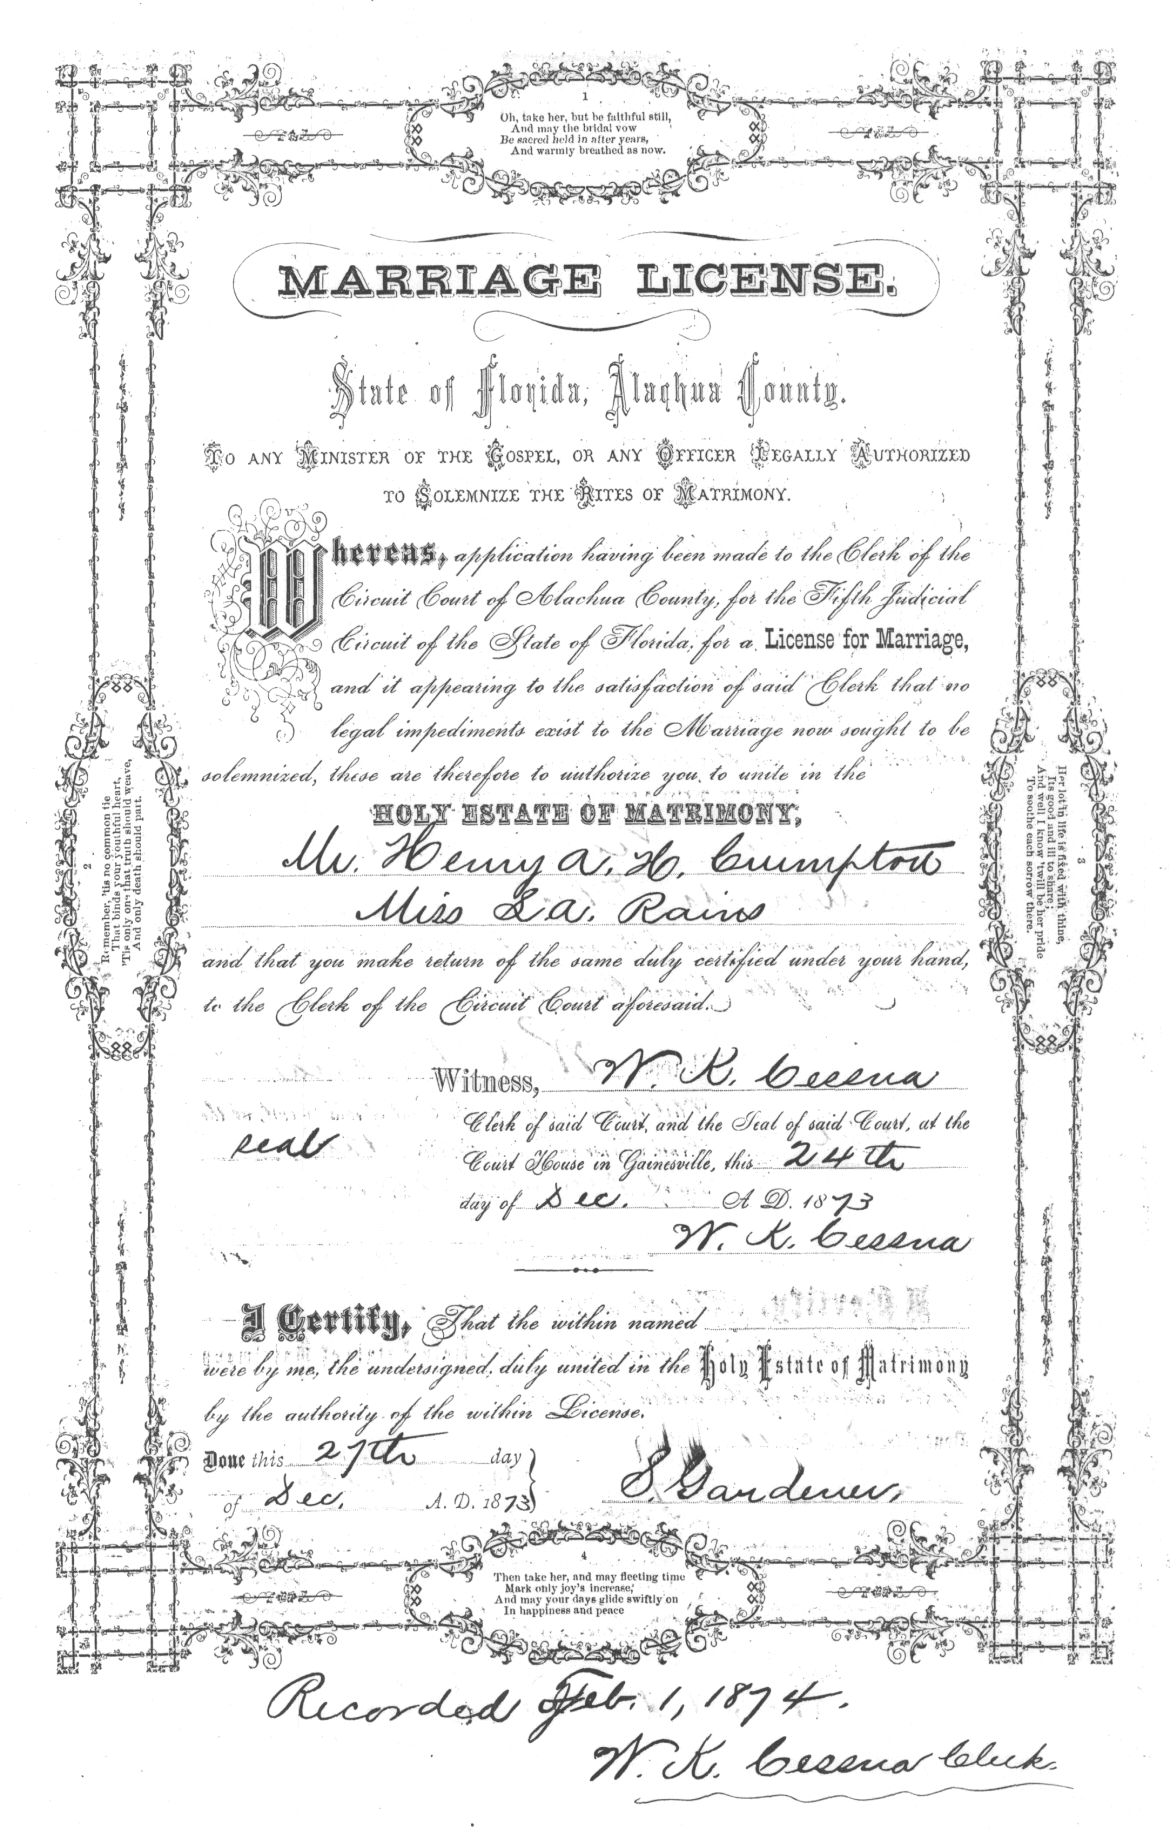 1
Oh, take her, but be faithful still,
And may the bridal vow
Be sacred held in after years,
And warmly breathed as now.
MARRIAGE LICENSE.
State of Florida, Alachua County.
TO ANY MINISTER OF THE GOSPEL, OR ANY OFFICER LEGALLY AUTHORIZED
TO SOLEMNIZE THE RITES OF MATRIMONY.
Whereas, application having been made to the Clerk of the
Circuit Court of Alachua County, for the Fifth Judicial
Circuit of the State of Florida, for a License for Marriage,
and it appearing to the satisfaction of said Clerk that no
legal impediments exist to the Marriage now sought to be
solemnized, these are therefore to authorize you to unite in the
HOLY ESTATE OF MATRIMONY,
Mr. Henry A. H. Crumpton
Miss L A. Rains
and that you make return of the same duly certified under your hand,
to the Clerk of the Circuit Court aforesaid.
Witness, W. K. Cessna
Clerk of said Court, and the Seal of said Court, at the
seal
Court House in Gainesville, this 24th
day of Dec. A D. 1873
W. K. Cessna
I Certify, That the within named
were by me, the undersigned, duly united in the Holy Estate of Matrimony
by the authority of the within License.
Done this 27th day
of Dec. A. D. 1873
S. Gardener,
2
Remember, 'tis no common tie
That binds your youthful heart,
'Tis only one that truth should weave,
And only death should part.
3
Her lot in life is fixed with thine,
Its good and ill to share;
And well I know 'twill be her pride
To soothe each sorrow there.
4
Then take her, and may fleeting time
Mark only joy's increase,
And may your days glide swiftly on
In happiness and peace
Recorded Feb. 1, 1874.
W. K. Cessna Clerk.